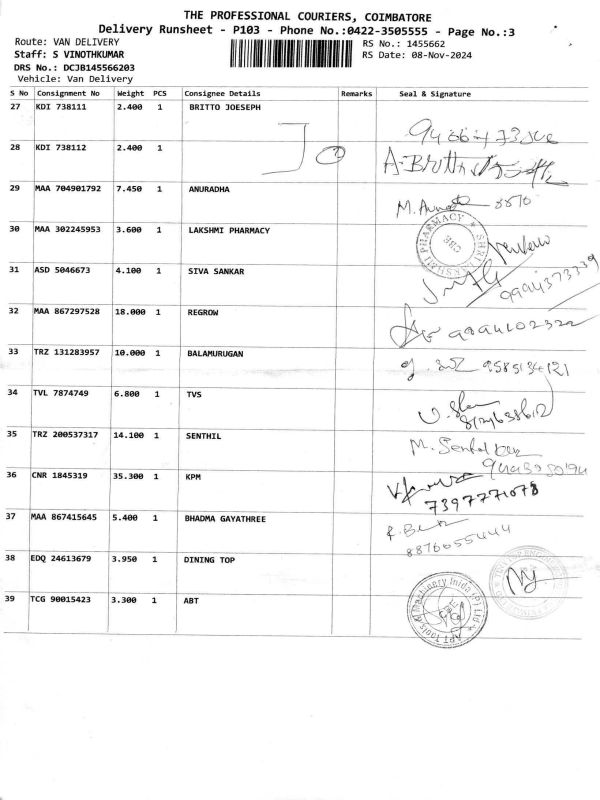 THE PROFESSIONAL COURIERS, COIMBATORE
Delivery Runsheet - P103 - Phone No.:0422-3505555 - Page No.:3
Route: VAN DELIVERY RS No.: 1455662
Staff: S VINOTHKUMAR RS Date: 08-Nov-2024
DRS No.: DCJB145566203
Vehicle: Van Delivery
S No Consignment No Weight PCS Consignee Details Remarks Seal & Signature
27 KDI 738111 2.400 1 BRITTO JOESEPH
28 KDI 738112 2.400 1
A. Britto
29 MAA 704901792 7.450 1 ANURADHA
8870
30 MAA 302245953 3.600 1 LAKSHMI PHARMACY
PHARMACY CBE
31 ASD 5046673 4.100 1 SIVA SANKAR
9994373339
32 MAA 867297528 18.000 1 REGROW
9894102322
33 TRZ 131283957 10.000 1 BALAMURUGAN
9585134121
34 TVL 7874749 6.800 1 TVS
35 TRZ 200537317 14.100 1 SENTHIL
M. Senthil
36 CNR 1845319 35.300 1 KPM
7397771078
37 MAA 867415645 5.400 1 BHADMA GAYATHREE
8876655444
38 EDQ 24613679 3.950 1 DINING TOP
39 TCG 90015423 3.300 1 ABT